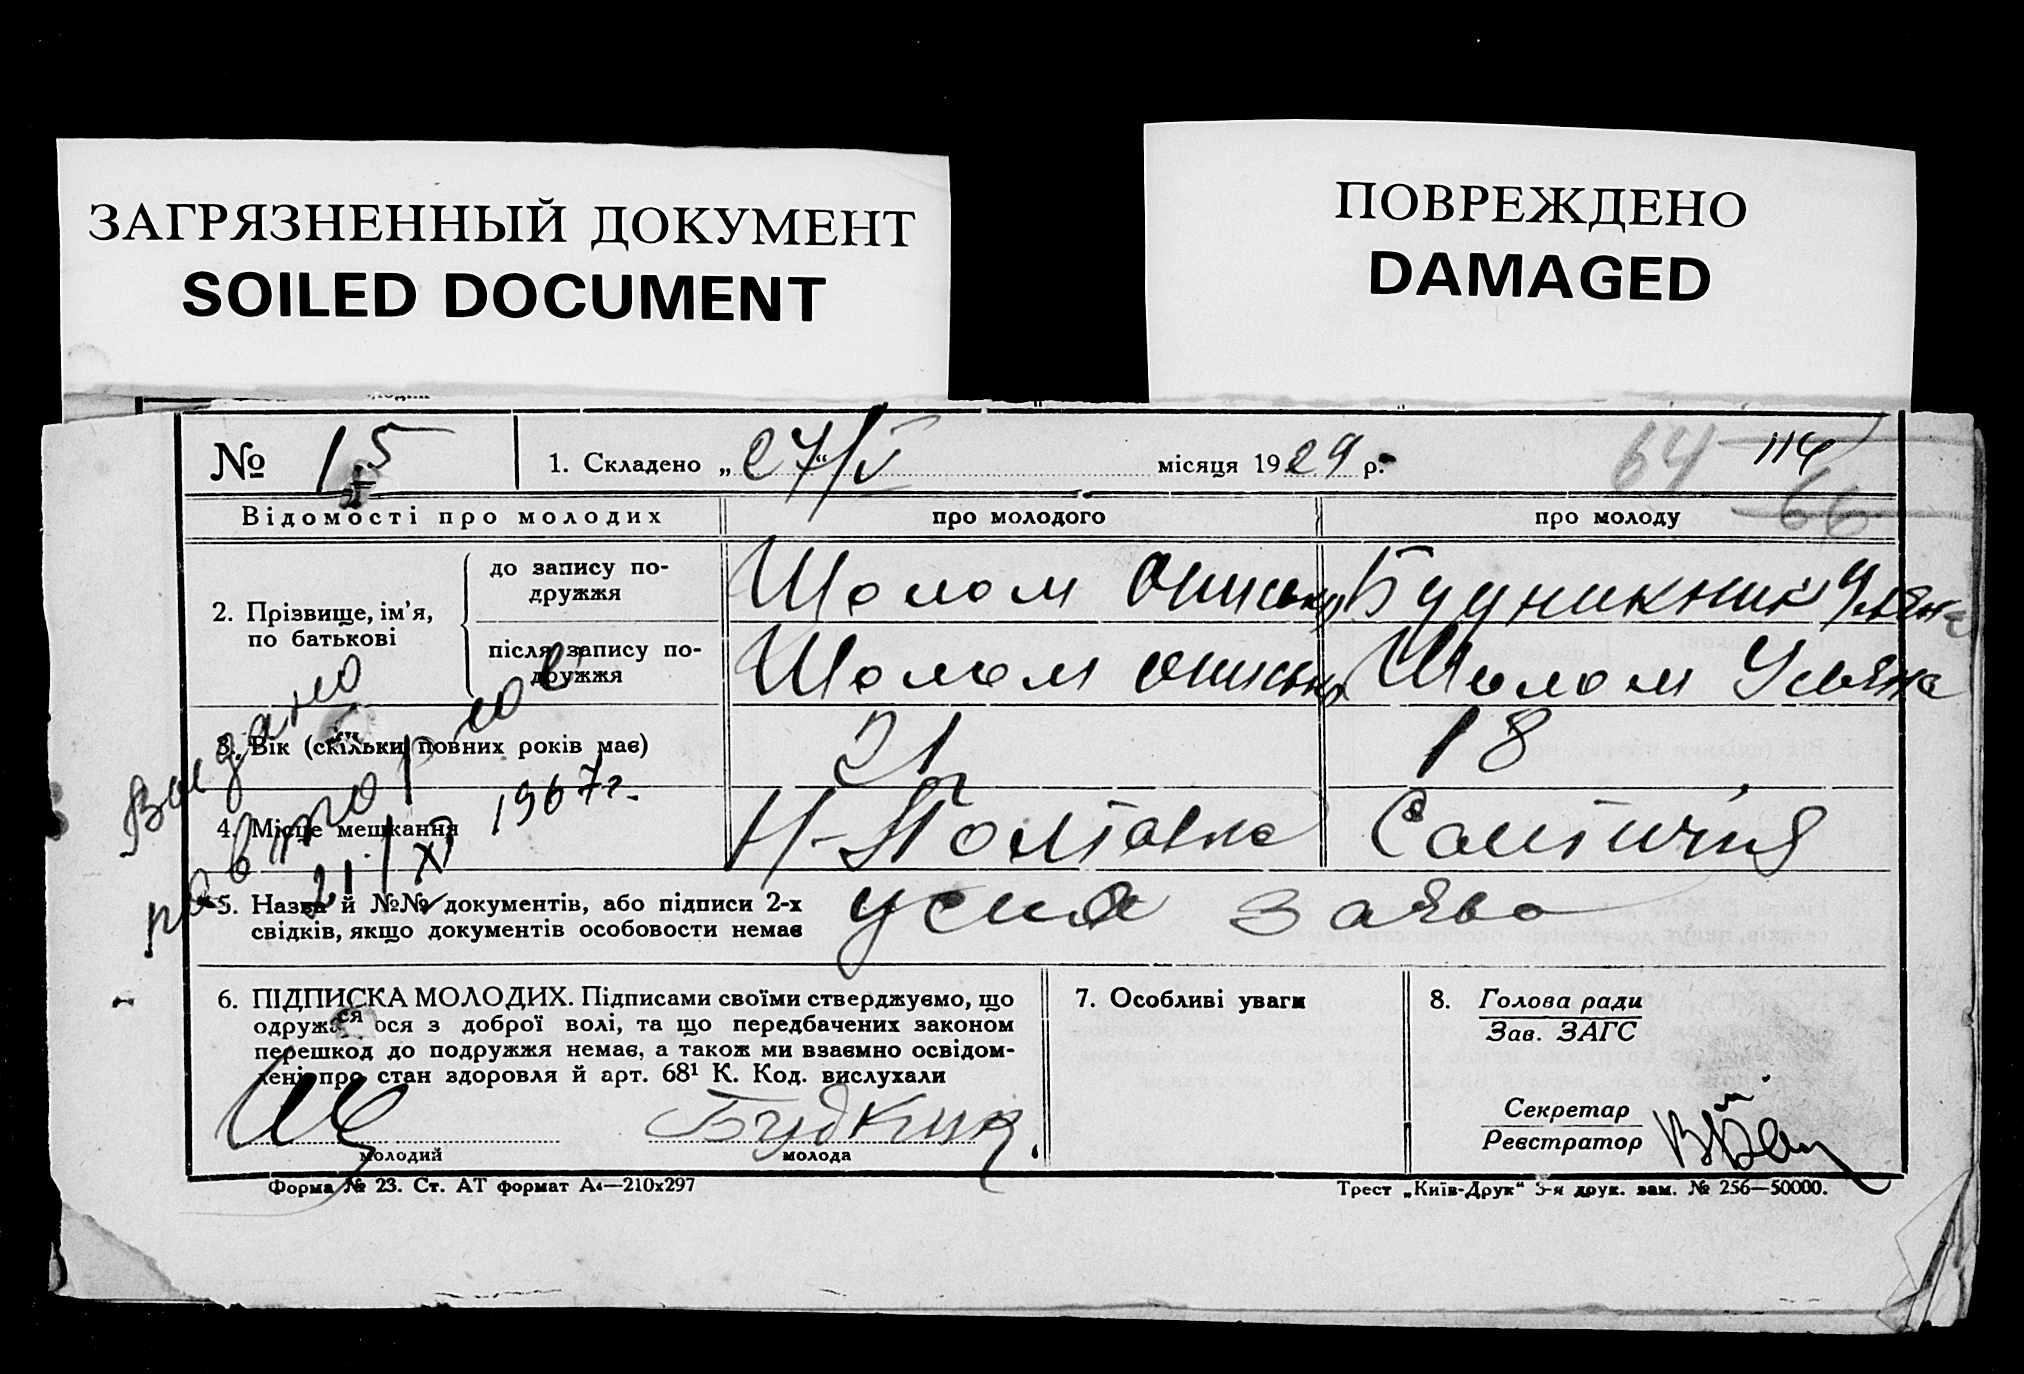 ЗАГРЯЗНЕННЫЙ ДОКУМЕНТ
SOILED DOCUMENT
ПОВРЕЖДЕНО
DAMAGED
№ 15
1. Складено „27/V“ місяця 1929 р.
64 114
66
Відомості про молодих
про молодого
про молоду
2. Прізвище, ім'я, по батькові
до запису по-
дружжя
Шолом
після запису по-
дружжя
Шолом
Шолом Уляна
3. Вік (скільки повних років має)
21
18
4. Місце мешкання
Н-Полтавка
5. Назва й №№ документів, або підписи 2-х
свідків, якщо документів особовости немає
усна заява
Выдано
повторное
21/XI 1967 г.
6. ПІДПИСКА МОЛОДИХ. Підписами своїми стверджуємо, що
одружилося з доброї волі, та що передбачених законом
ся
перешкод до подружжя немає, а також ми взаємно освідом-
лені про стан здоровля й арт. 68¹ К. Код. вислухали
молодий
молода
7. Особливі уваги
8. Голова ради
Зав. ЗАГС
Секретар
Реєстратор
Форма № 23. Ст. АТ формат А₄—210х297
Трест „Київ-Друк“ 3-я друк. зам. № 256—50000.